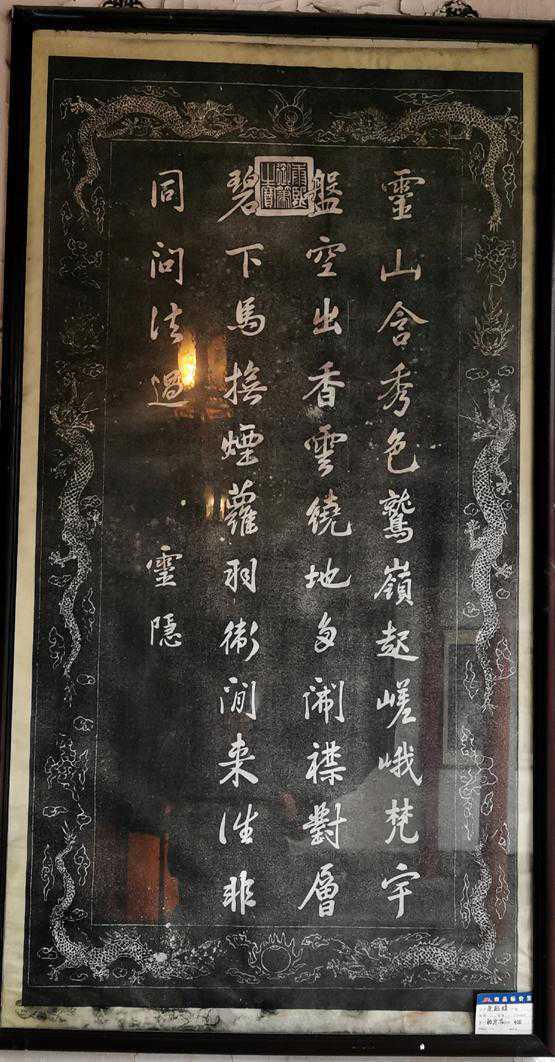 靈山含秀色鷲嶺起嵯峨梵宇
盤空出香雲繞地多開襟對層
碧下馬撫煙蘿羽衛閒来往非
同问法過　靈隱
康熙御筆之寶